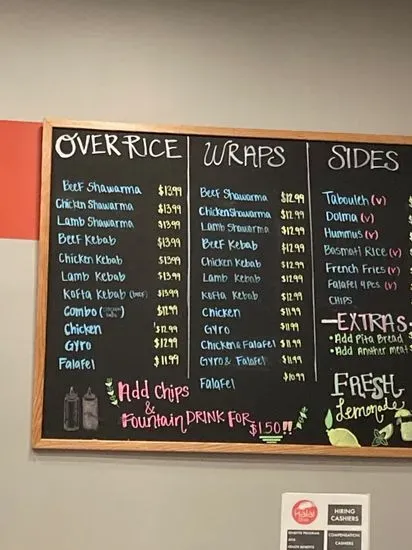 OVER RICE
Beef Shawarma $13.99
Chicken Shawarma $13.99
Lamb Shawarma $13.99
Beef Kebab $13.99
Chicken Kebab $13.99
Lamb Kebab $13.99
Kofta Kebab (beef) $13.99
Combo
Chicken $12.99
Gyro $12.99
Falafel $11.99
WRAPS
Beef Shawarma $12.99
Chicken Shawarma $12.99
Lamb Shawarma $12.99
Beef Kebab $12.99
Chicken Kebab $12.99
Lamb Kebab $12.99
Kofta Kebab $12.99
Chicken $11.99
Gyro $11.99
Chicken & Falafel $11.99
Gyro & Falafel $11.99
Falafel $10.99
SIDES
Tabouleh (v)
Dolma (v)
Hummus (v)
Basmati Rice (v)
French Fries (v)
Falafel 4 pcs. (v)
CHIPS
EXTRAS
• Add Pita Bread
• Add Another meat
Add Chips
&
Fountain DRINK FOR
$1.50!!
FRESH
Lemonade
Halal
HIRING
CASHIERS
BENEFITS PROGRAM
HEALTH BENEFITS
COMPENSATION
CASHIERS